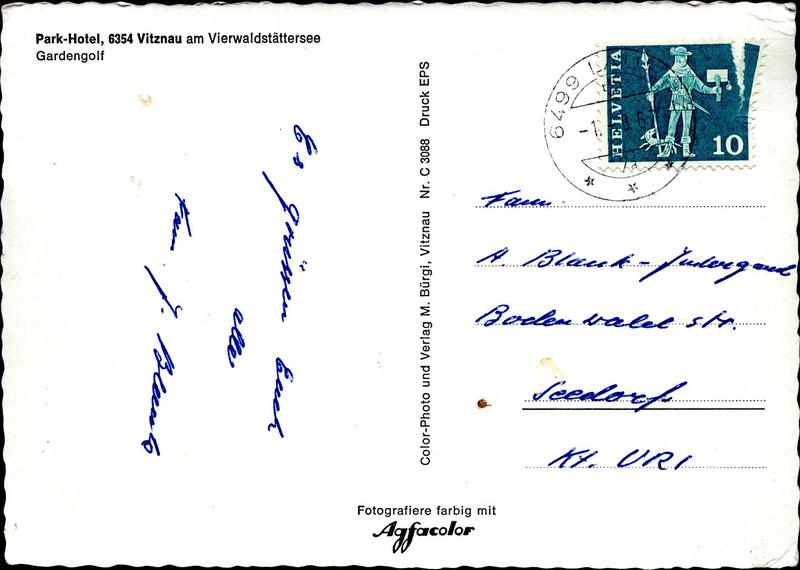 Park-Hotel, 6354 Vitznau am Vierwaldstättersee
Gardengolf
Es grüssen Euch
alle
Fam. J. Blank
Color-Photo und Verlag M. Bürgi, Vitznau Nr. C 3088 Druck EPS
Fotografiere farbig mit
Agfacolor
6499
HELVETIA
10
Fam.
A. Blank-Indergand
Bodenwald str.
Seedorf
Kt. URI